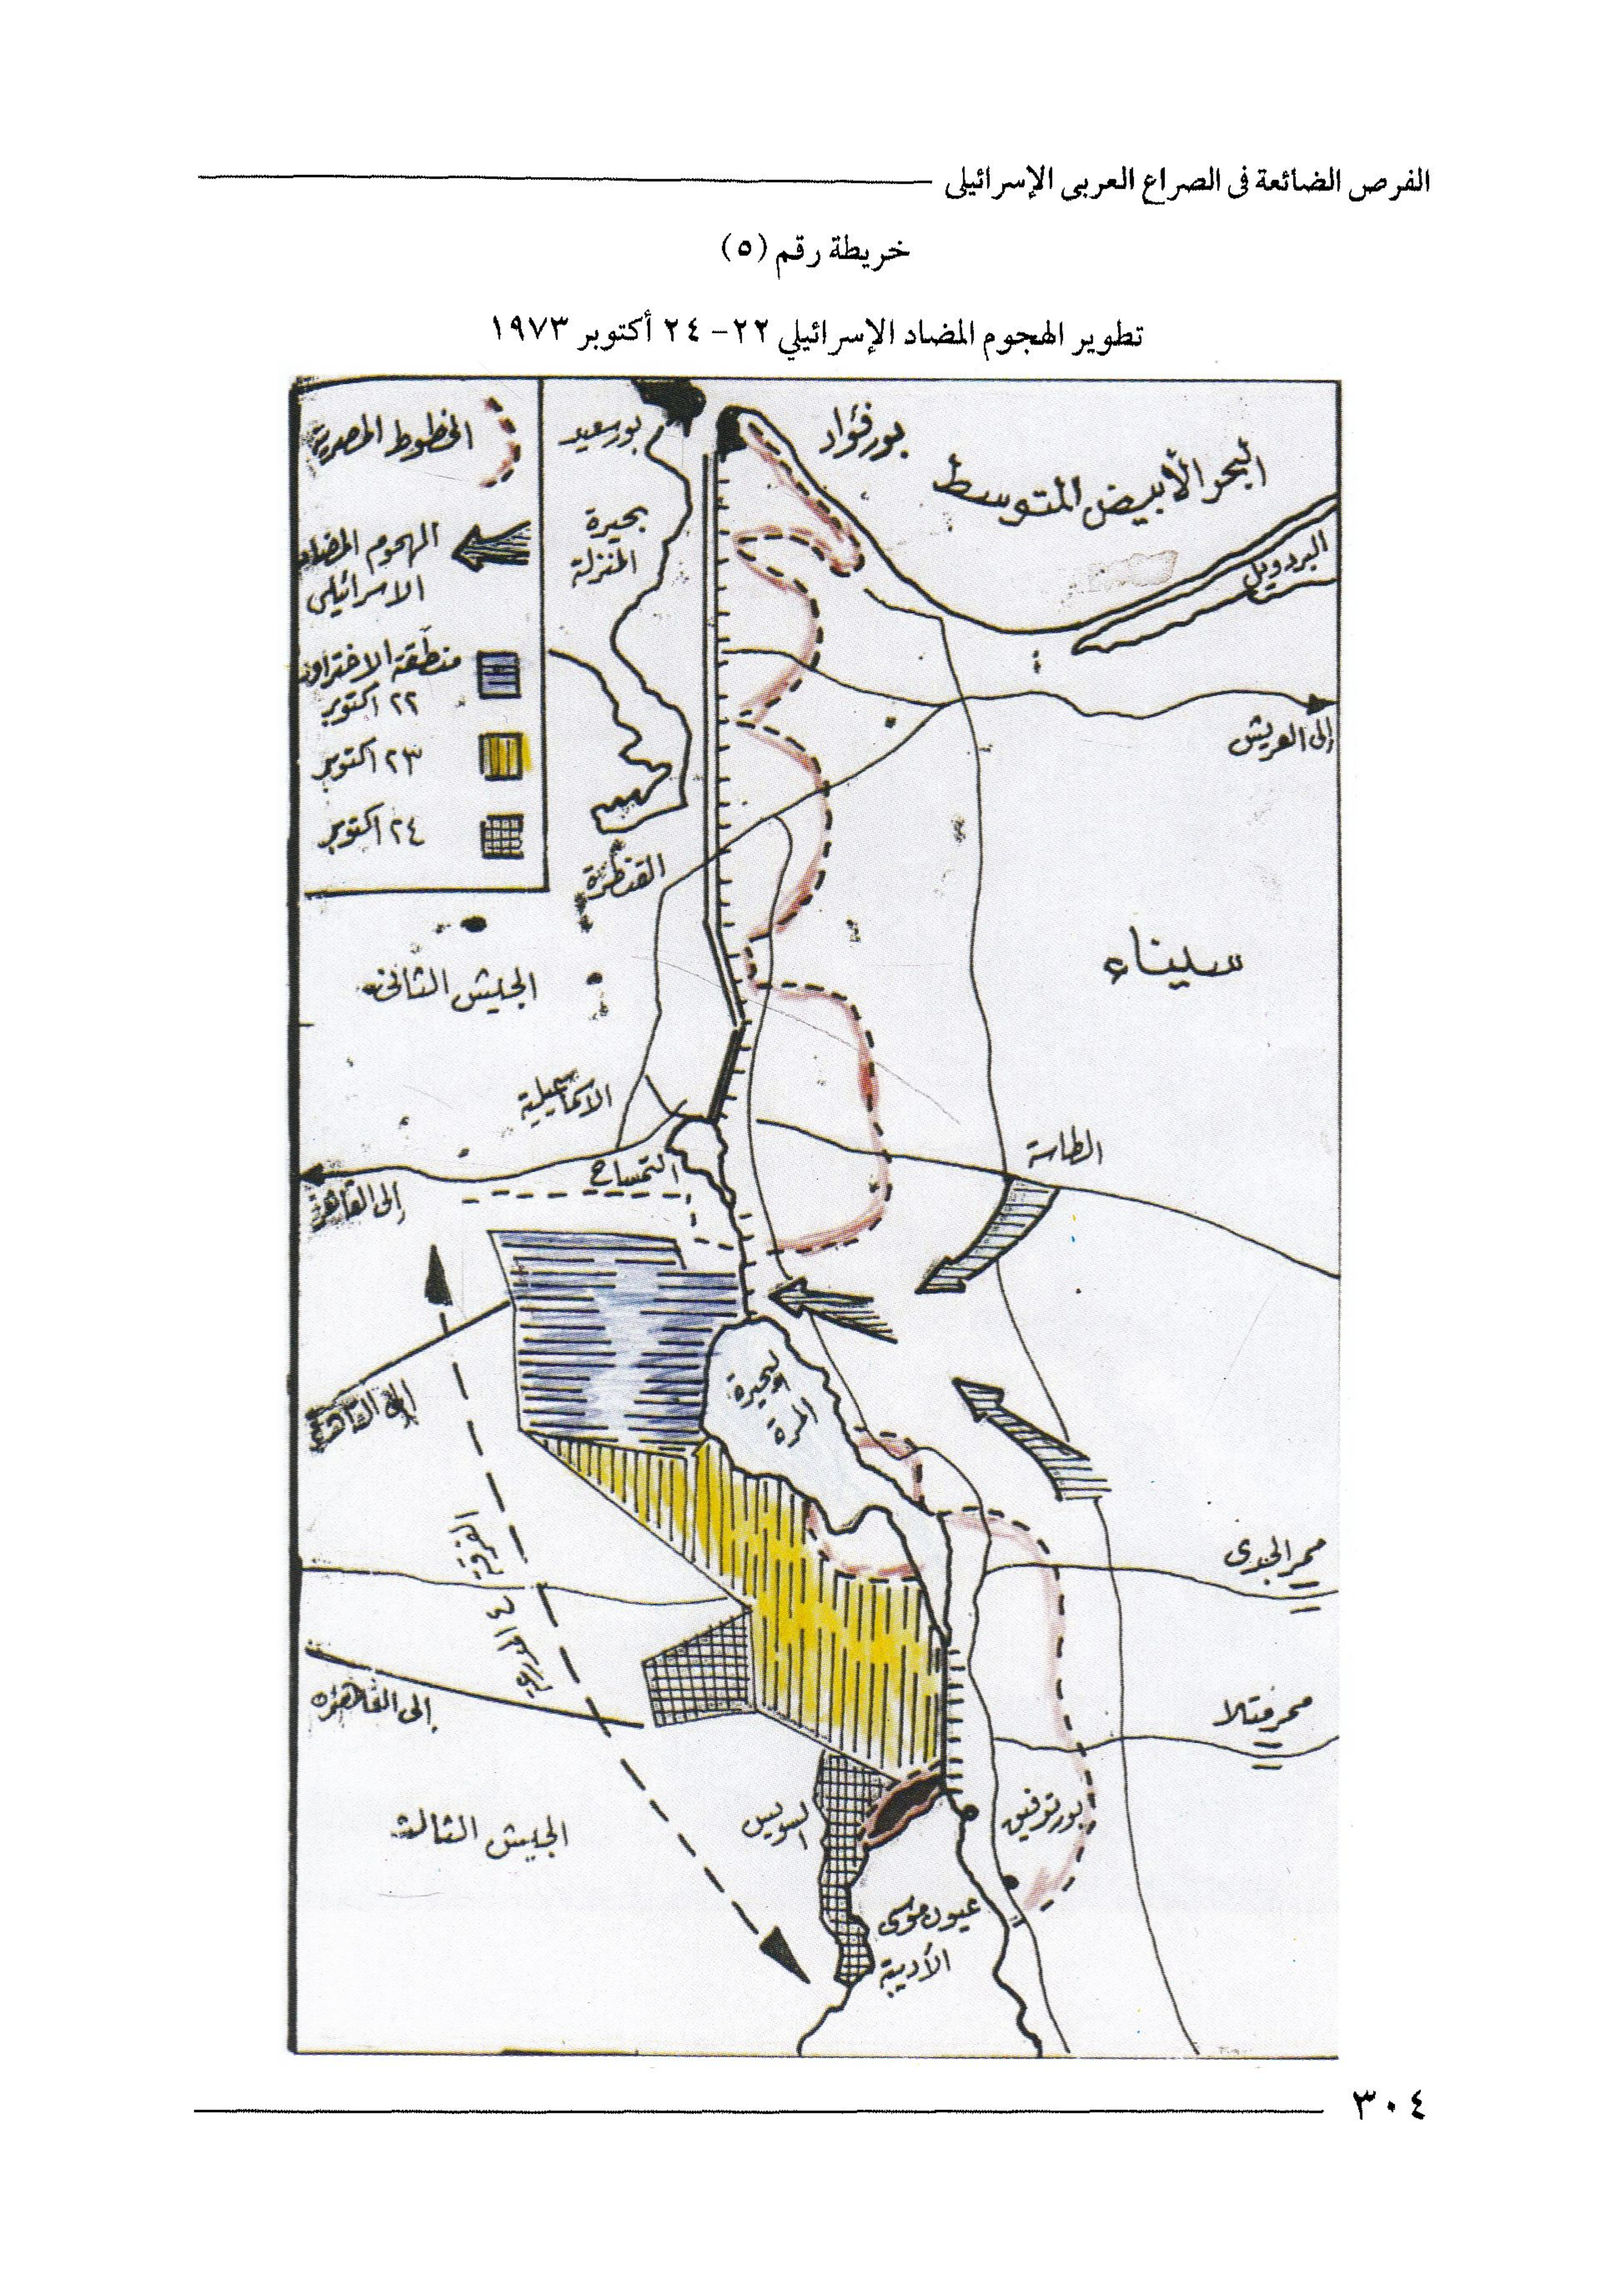 الفرص الضائعة فى الصراع العربى الإسرائيلى
خريطة رقم (٥)
تطوير الهجوم المضاد الإسرائيلي ٢٢- ٢٤ أكتوبر ١٩٧٣
الخطوط المصرية
الهجوم المضاد
الاسرائيلى
منطقة الاختراق
٢٢ اكتوبر
٢٣ اكتوبر
٢٤ اكتوبر
بورسعيد
بورفؤاد
البحر الأبيض المتوسط
بحيرة
المنزلة
البردويل
إلى العريش
القنطرة
سيناء
الجيش الثانى
الاسماعيلية
الطاسة
التمساح
إلى القاهرة
البحيرة
المرة
إلى القاهرة
ممر الجدى
الفرقة ٤ المدرعة
إلى القاهرة
ممر متلا
السويس
بورتوفيق
الجيش الثالث
عيون موسى
الأدبية
٣٠٤